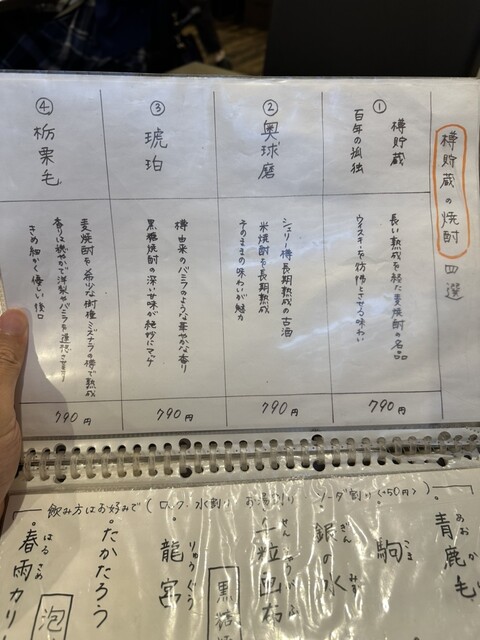 樽貯蔵の焼酎 四選
①
樽貯蔵
百年の孤独
長い熟成を経た麦焼酎の名品
ウィスキーを彷彿とさせる味わい
790円
②
奥球磨
シェリー樽長期熟成の古酒
米焼酎を長期熟成
そのままの味わいが魅力
790円
③
琥珀
樽由来のバニラのような華やかな香り
黒糖焼酎の深い甘味が絶妙にマッチ
790円
④
栃栗毛
麦焼酎を希少な樹種ミズナラの樽で熟成
香りは穏やかで洋梨やバニラを連想させる
きめ細かく優しい後口
790円
飲み方はお好みで(ロック・水割り お湯割り ソーダ割り(+50円))
青鹿毛
あおかげ
駒
こま
銀の水
ぎん みず
一粒
龍宮
りゅうぐう
黒糖
・たかたろう
・春雨カリー
はる さめ
泡